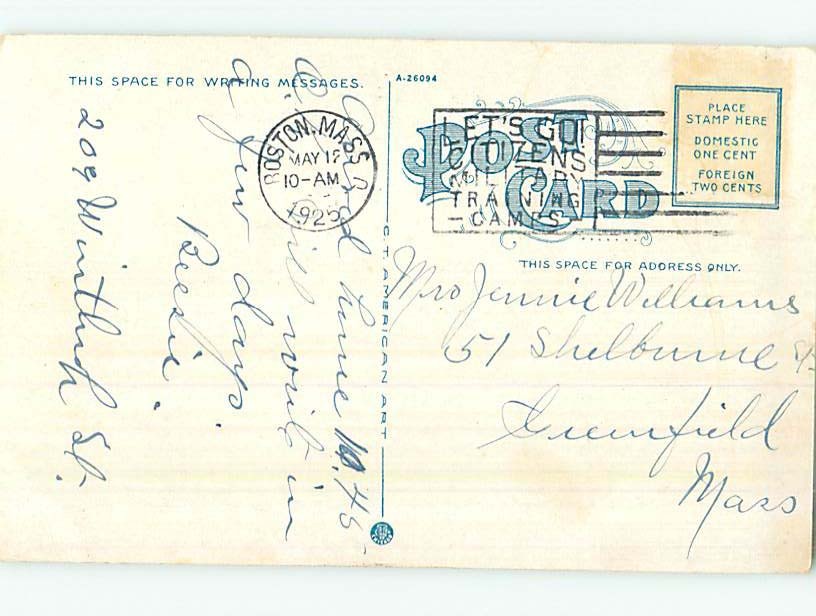 THIS SPACE FOR WRITING MESSAGES.
A-26094
Arrived home 10.45
will write in
a few days
Bessie.
209 Winthrop St.
BOSTON, MASS.
MAY 12
10-AM
1925
LET'S GO!
CITIZENS
MILITARY
TRAINING
-CAMPS-
POST CARD
PLACE
STAMP HERE
DOMESTIC
ONE CENT
FOREIGN
TWO CENTS
C.T. AMERICAN ART
THIS SPACE FOR ADDRESS ONLY.
Mrs Jennie Williams
51 Shelburne St
Greenfield
Mass